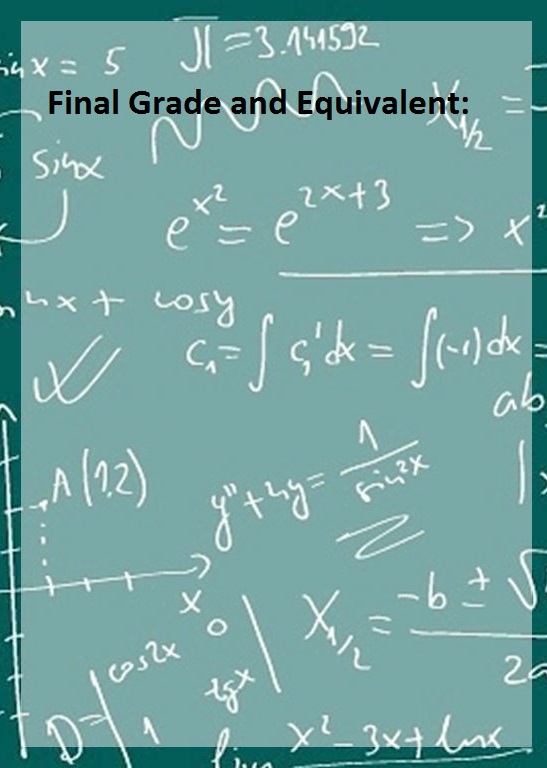 sin x = 5
π = 3.141592
Final Grade and Equivalent:
X₁/₂ =
sinx
e^x² = e^2x+3 => x²
nx + cosy
C₁ = ∫ C₁' dx = ∫(-1) dx =
ab
A (1,2)
y" + 4y = 1 / sin²x
x
X₁/₂ = -b ± √ / 2a
D = | cos2x 0 |
1 tgx
lim x² - 3x + lnx